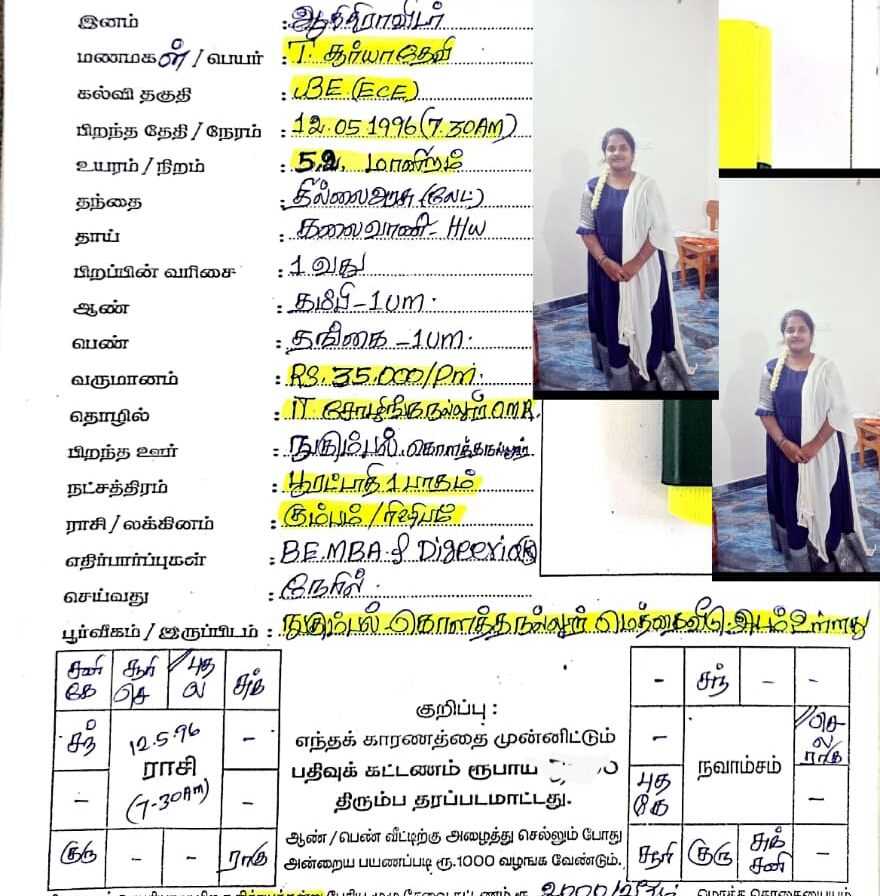 இனம் : ஆதிதிராவிடர்
மணமகள் / பெயர் : T. சூர்யாதேவி
கல்வி தகுதி : BE (ECE)
பிறந்த தேதி / நேரம் : 12.05.1996 (7.30AM)
உயரம் / நிறம் : 5.2. மாநிறம்
தந்தை : தில்லைஅரசு (லேட்)
தாய் : கலைவாணி - H/W
பிறப்பின் வரிசை : 1 வது
ஆண் : தம்பி - 1 um.
பெண் : தங்கை - 1 um.
வருமானம் : RS. 35.000/Pm.
தொழில் : IT சோழிங்கநல்லூர் OMR.
பிறந்த ஊர் : கொளத்தநல்லூர்
நட்சத்திரம் : பூரட்டாதி 1 பாதம்
ராசி / லக்கினம் : கும்பம் / ரிஷபம்
எதிர்பார்ப்புகள் : BE. MBA. & Digeeri
செய்வது : நேரில்.
பூர்வீகம் / இருப்பிடம் : கொளத்தநல்லூர் மெத்தைவீடு. உள்ளது
சனி கே
சூரி செ
புத ல
சுக்
சந்
12.5.96
ராசி
(7-30AM)
-
-
-
குரு
-
-
ராகு
குறிப்பு :
எந்தக் காரணத்தை முன்னிட்டும்
பதிவுக் கட்டணம் ரூபாய்
திரும்ப தரப்படமாட்டாது.
ஆண் / பெண் வீட்டிற்கு அழைத்து செல்லும் போது
அன்றைய பயணப்படி ரூ.1000 வழங்க வேண்டும்.
-
சந்
-
-
-
நவாம்சம்
செ ல ராகு
புத கே
-
சூரி
குரு
சுக் சனி